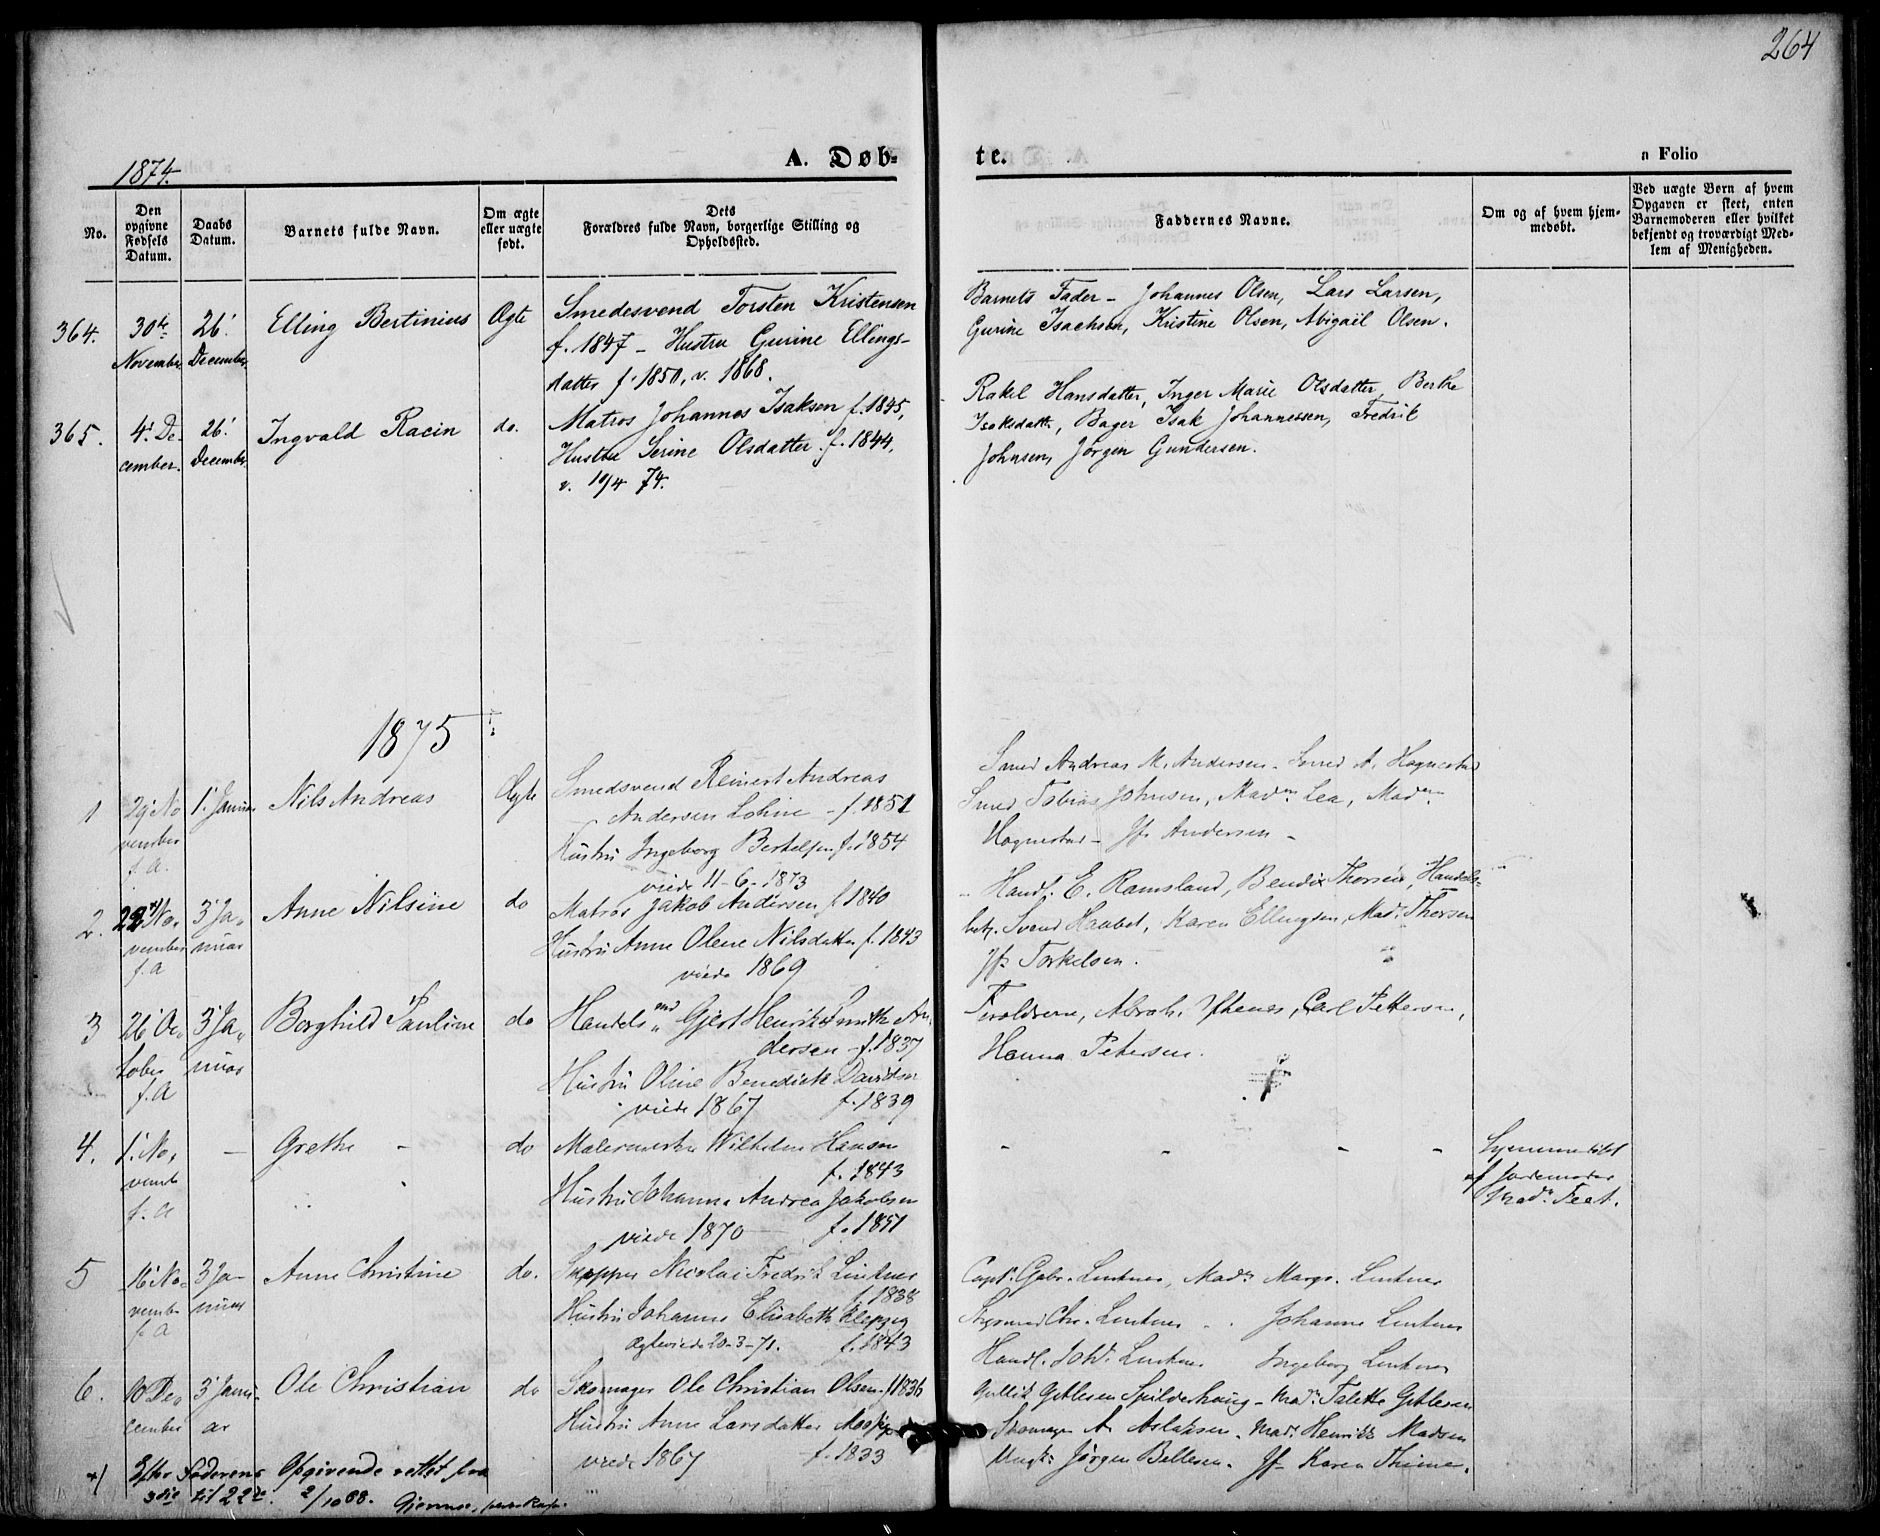 264
1874.
A. Døb-
te.
a Folio
No.
Den opgivne Fødsels Datum.
Daabs Datum.
Barnets fulde Navn.
Om ægte eller uægte født.
Dets Forældres fulde Navn, borgerlige Stilling og Opholdssted.
Faddernes Navne.
Om og af hvem hjemmedøbt.
Ved uægte Børn af hvem
Opgaven er skeet, enten
Barnemoderen eller hvilket
bekjendt og troværdigt Med-
lem af Menigheden.
364.
30te November
26' December
Elling Bertinius
Ægte
Smedesvend Torsten Kristensen
f. 1847 - Hustru Gurine Ellings-
datter f. 1850, v. 1868.
Barnets Fader - Johannes Olsen, Lars Larsen,
Gurine Isachsen, Kristine Olsen, Abigail Olsen.
365.
4' De-
cember
26' December
Ingvald Racin
do.
Matros Johannes Isaksen f. 1845,
Hustru Serine Olsdatter f. 1844,
v. 10/4 74.
Rakel Hansdatter, Inger Marie Olsdatter, Berthe
Isaksdatt., Bager Isak Johannessen, Fredrik
Johnsen, Jørgen Gundersen.
1875
1
29' No
vember
f. A.
1' Januar
Nils Andreas
Ægte
Smedsvend Reinert Andreas
Andersen Lohne - f. 1851
Hustru Ingeborg Bertelsen f. 1854
viede 11-6-1873
Smed Andreas M. Andersen - Smed A. Hognestad
Smed Tobias Johnsen, Madm Lea, Madm
Hognestad - Jfr Andersen -
2.
22 No-
vember
f. A
3' Ja-
nuar
Anne Nilsine
do
Matros Jakob Andersen f. 1840
Hustru Anne Olene Nilsdatter f. 1843
viede 1869
Handl. E. Ramsland, Bendix Thorsen, Handels-
betj. Svend Haabet, Karen Ellingsen, Mad. Thorsen
Jfr Torkelsen.
3
26' Oc-
tober
f. A
3' Ja-
nuar
Borghild Pauline
do
Handelsmd Gjert Henrik Smith An-
dersen - f. 1837
Hustru Oline Benedicte Davidsen
viede 1867 f. 1839
Forældrene, Carl Pettersen,
Hanna Petersen.
4.
1' No-
vemb
f. A
-
Grethe -
do
Malermester Wilhelm Hansen
f. 1843
Hustru Johanna Andrea Jakobsen
viede 1870 f. 1851
Hjemmedøbt
af Jordemoder
Madm Feet.
5
16' No-
vemb
f. A
3 Ja-
nuar
Anne Christine
do.
Skipper Nicolai Fredrik Lintner
f. 1838
Hustru Johanne Elisabeth Kleppig
Ægteviede 20-3-71. f. 1843
Capt. Gabr. Lintner, Madm Margr. Lintner
Chr. Lintner Johanne Lintner
Handl. Joh. Lintner Ingeborg Lintner
6.
10 De-
cember
3' Janu-
ar
Ole Christian
do
Skomager Ole Christian Olsen f. 1836
Hustru Anne Larsdatter
viede 1867 f. 1833
Gullik Gitlesen Spilderhaug - Mad. Talette Gitlesen
Skomager A. Aslaksen - Mad. Henrikke Madsen
Ungk. Jørgen Bellesen. Jfr Karen Thime.
+) Efter Faderens Opgivende rettet fra
3die til 22de. 2/10 88. Gjerrus,